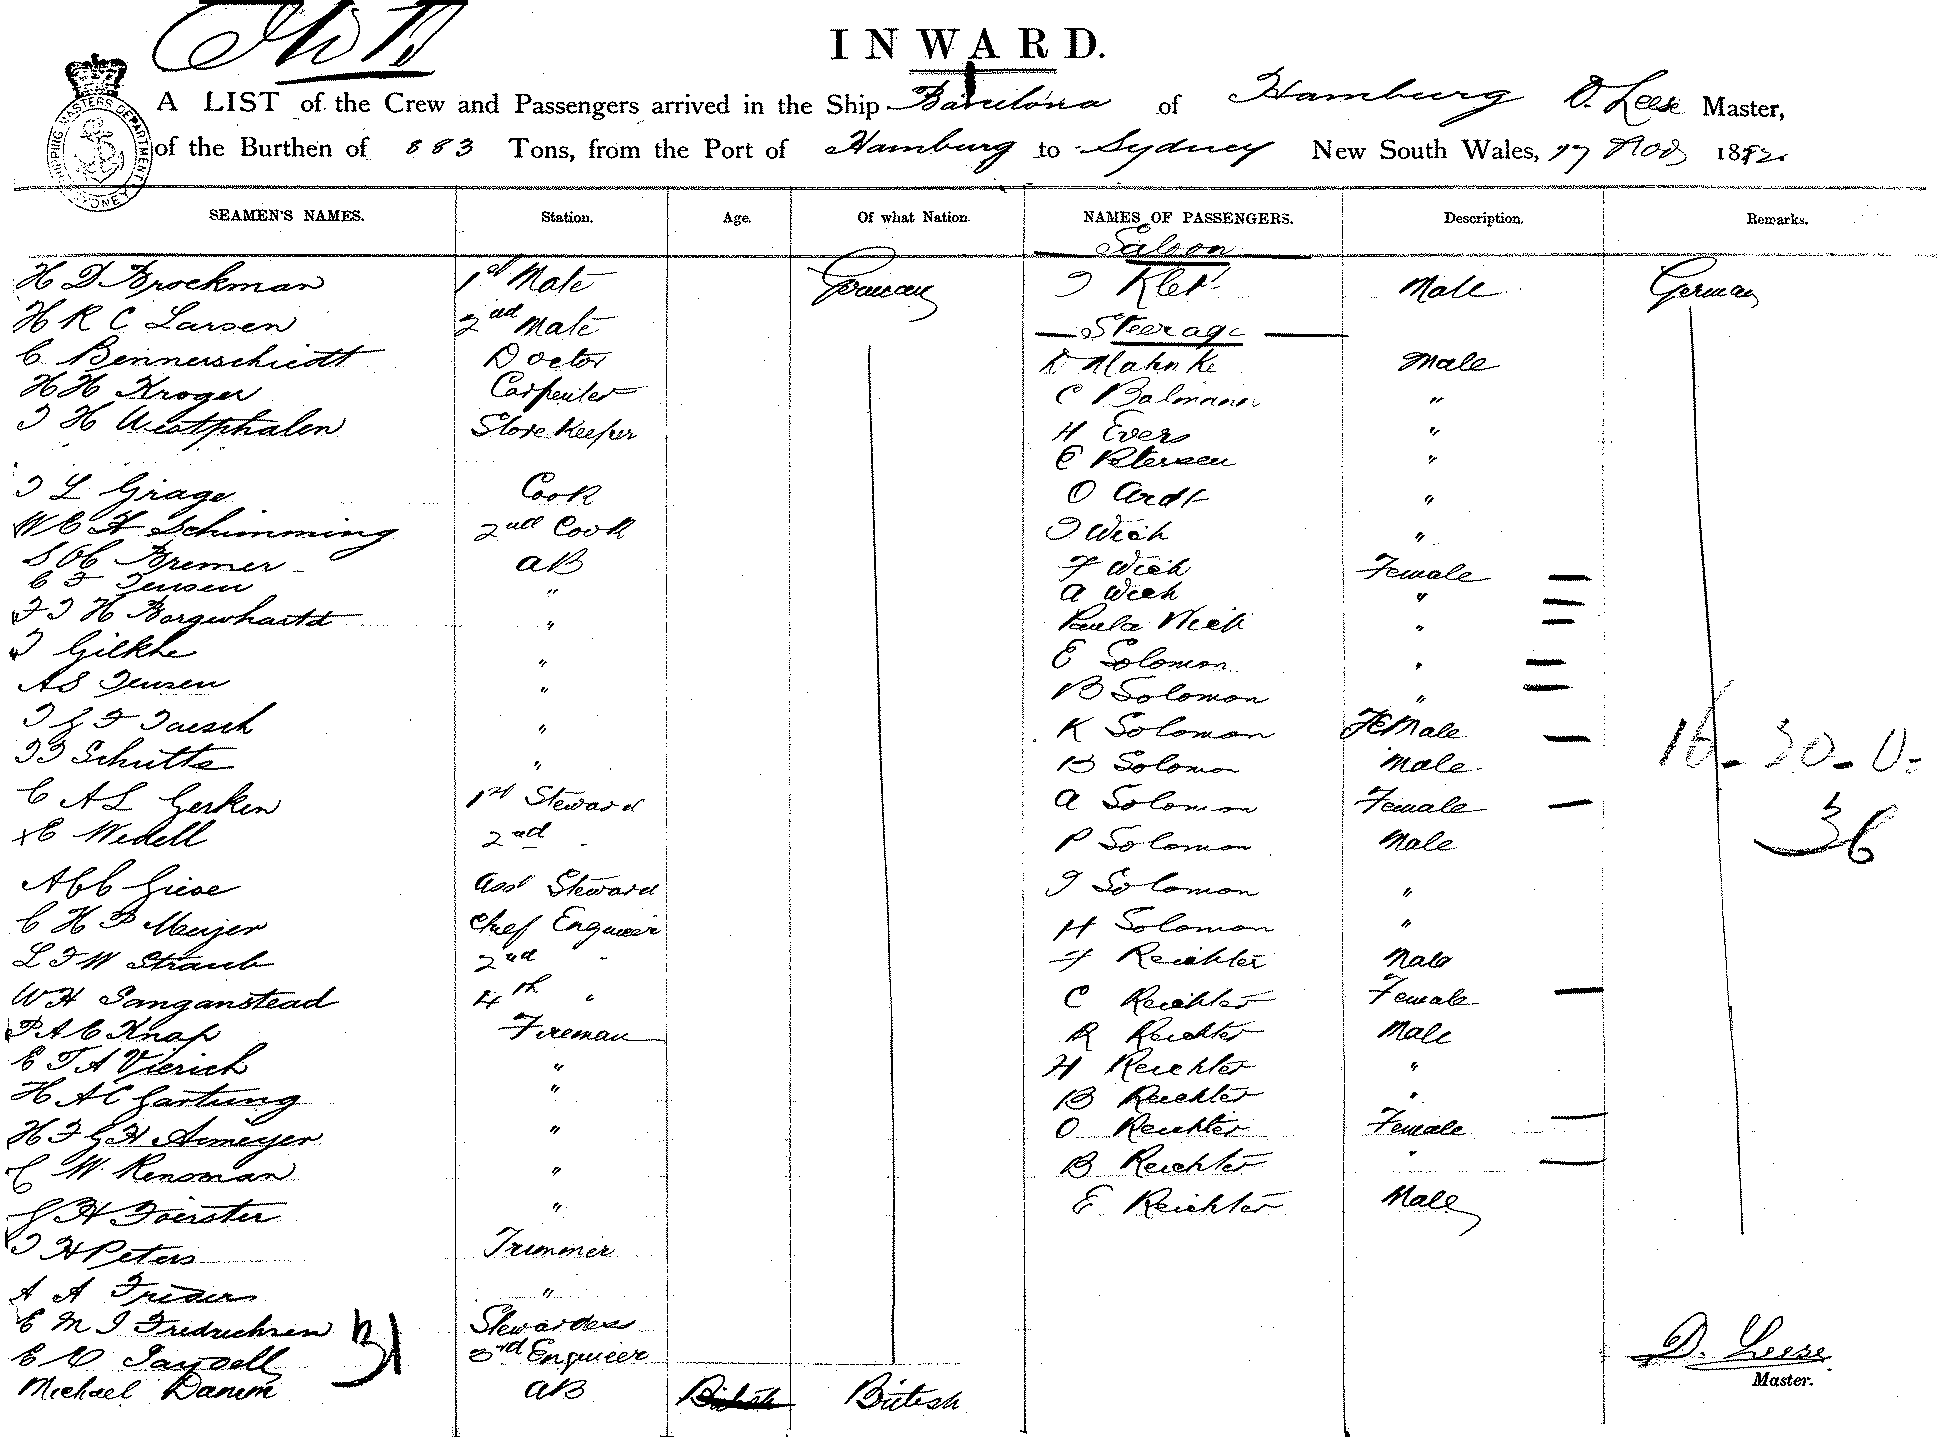 INWARD.
A LIST of the Crew and Passengers arrived in the Ship Barcelona of Hamburg D. Leese Master,
of the Burthen of 883 Tons, from the Port of Hamburg to Sydney New South Wales, 17 Nov 1882
SHIPPING MASTERS DEPARTMENT SYDNEY
SEAMEN'S NAMES. Station. Age. Of what Nation. NAMES OF PASSENGERS. Description. Remarks.
Saloon
H D Brockman 1st Mate German Male German
H R C Larsen 2nd Mate Steerage
C Bennerschiedt Doctor D Mahnke Male
H H Kroger Carpenter C Balmann "
J H Westphalen Store Keeper H Evers "
C Petersen "
J L Grage Cook O Ardt "
W C H Schimming 2nd Cook J Wieh "
Bremer AB F Wieh Female
C F Jensen " A Wieh "
F J H Borgwhardt " Paula Wieh "
J Gilkhe " E Solomon "
A S Jensen " B Solomon "
J G F Jaesch " K Solomon Female
J J Schutte " B Solomon Male 16 - 30 - 0 -
C A L Gerken 1st Steward A Solomon Female
C Wedell 2nd " P Solomon Male 36
A C C Giese Asst Steward J Solomon "
C H P Meijer Chief Engineer H Solomon "
L F W Straub 2nd " F Reichter Male
W H Sanganstead 4th " C Reichter Female
P A C Knap Fireman R Reichter Male
E T A Vierich " H Reichter "
H A C Gartung " B Reichter "
H F G H Asmeyer " O Reichter Female
C W Rensman " B Reichter "
G H Foerster " E Reichter Male
J H Peters Trimmer
A A "
E M J Fredrichsen 31 Stewardess D. Leese
3rd Engineer Master.
Michael AB British British